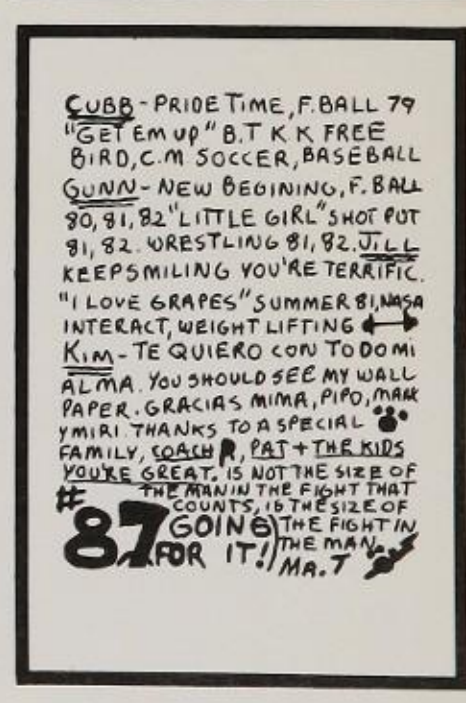 CUBB - PRIDE TIME, F.BALL 79
"GET EM UP" B.T K K FREE
BIRD, C.M SOCCER, BASEBALL
GUNN - NEW BEGINING, F. BALL
80, 81, 82 "LITTLE GIRL" SHOT PUT
81, 82. WRESTLING 81, 82. JILL
KEEP SMILING YOU'RE TERRIFIC.
"I LOVE GRAPES" SUMMER 81, NASA
INTERACT, WEIGHT LIFTING
KIM - TE QUIERO CON TODO MI
ALMA. YOU SHOULD SEE MY WALL
PAPER. GRACIAS MIMA, PIPO, MARK
Y MIRI. THANKS TO A SPECIAL
FAMILY, COACH R, PAT + THE KIDS
YOU'RE GREAT. IS NOT THE SIZE OF
THE MAN IN THE FIGHT THAT
COUNTS, IS THE SIZE OF
THE FIGHT IN
THE MAN
MA. T
#87 GOING
FOR IT!